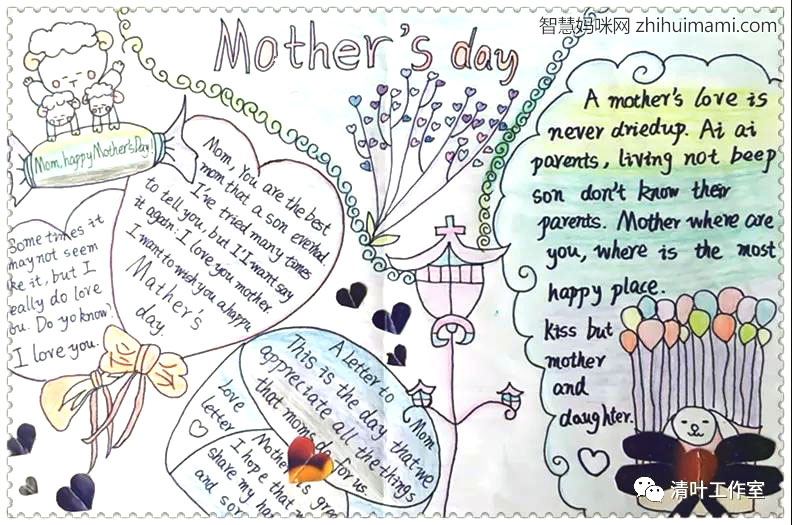 智慧妈咪网 zhihuimami.com
Mother's day
Mom, happy Mother's Day!
Mom, You are the best
mom that a son everhad.
I've tried many times
to tell you, but I'I want say
it again: I love you mother
I want to wish you a happy
Mather's
day.
Some times it
may not seem
ke it, but I
eally do love
ou. Do yo know?
I love you.
A letter to Mom
This is the day that we
appreciate all the things
that moms do for us.
Love
Letter
Mother's gra
I hope that w
share my ha
and sor
A mother's love is
never driedup. Ai ai
parents, living not beep
son don't know their
parents. Mother where are
you, where is the most
happy place.
kiss but
mother
and
daughter.
清叶工作室